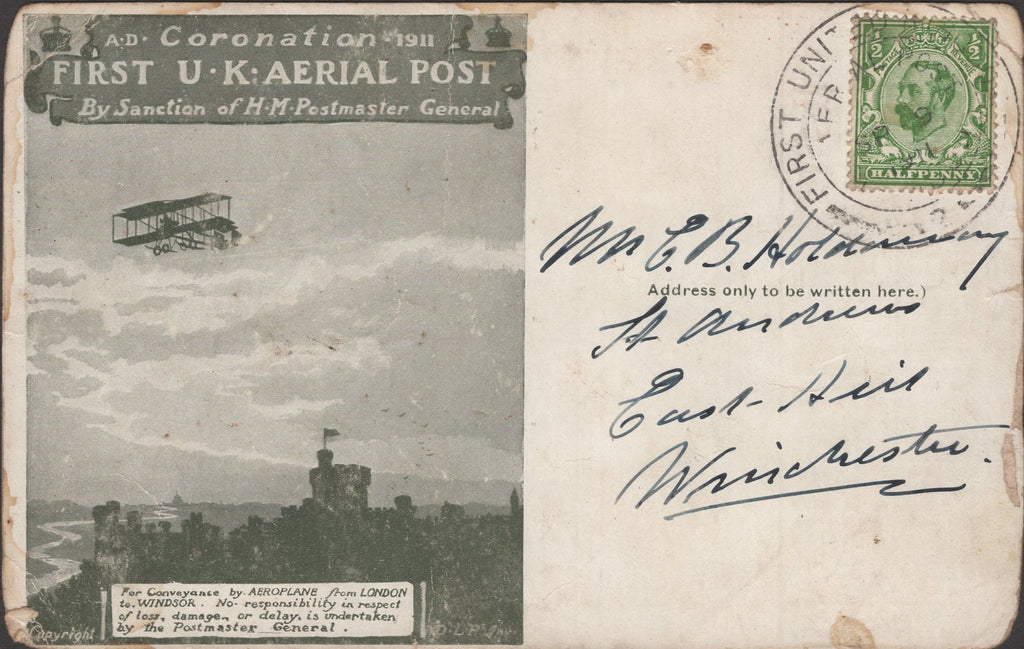 A·D· Coronation 1911
FIRST U·K: AERIAL POST
By Sanction of H·M·Postmaster General
For Conveyance by AEROPLANE from LONDON
to WINDSOR. No responsibility in respect
of loss, damage, or delay, is undertaken
by the Postmaster General.
Copyright
FIRST UNIT
AER
½ ½
POSTAGE REVENUE
HALFPENNY
Mr E. B. Holdaway
Address only to be written here.)
St Andrews
East Hill
Winchester.